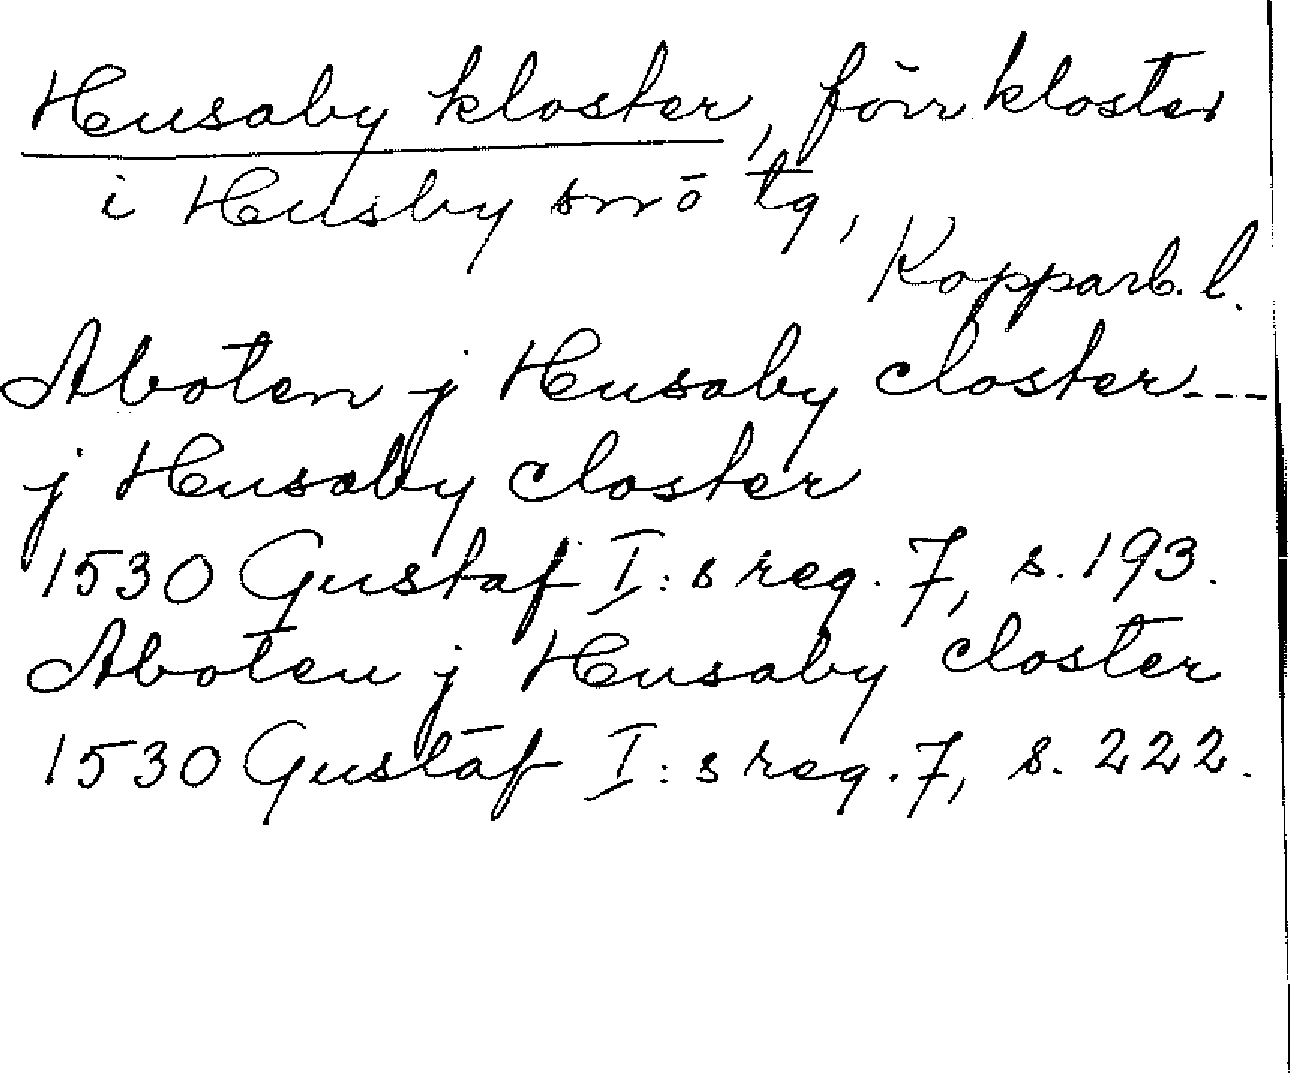 Husaby kloster, förr kloster
i Husby snö tg,
Kopparb. l.
Aboten j Husaby closter---
j Husaby closter
1530 Gustaf I:s reg. 7, s. 193.
Aboten j Husaby closter
1530 Gustaf I:s reg. 7, s. 222.